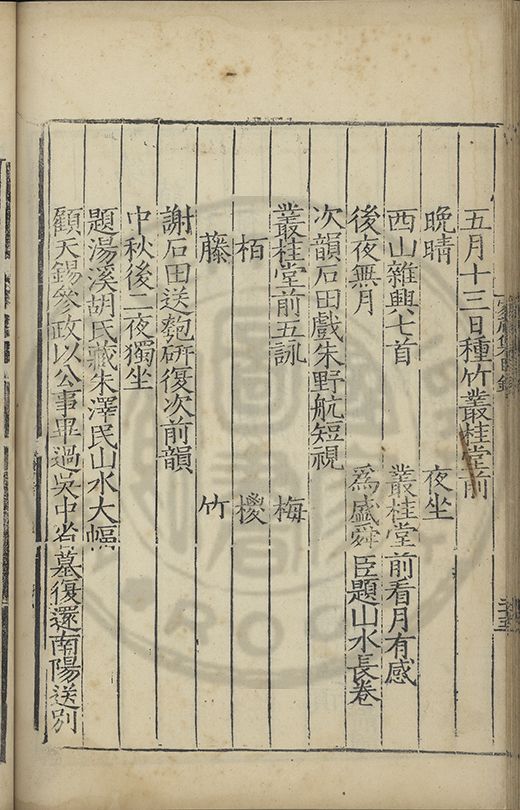 五月十三日種竹叢桂堂前
晚晴　夜坐
西山雜興七首　叢桂堂前看月有感
後夜無月　爲盛舜臣題山水長卷
次韻石田戲朱野航短視
叢桂堂前五詠　梅
栢　椶
藤　竹
謝石田送匏研復次前韻
中秋後二夜獨坐
題湯溪胡氏藏朱澤民山水大幅
顧天錫參政以公事畢過吳中省墓復還南陽送別